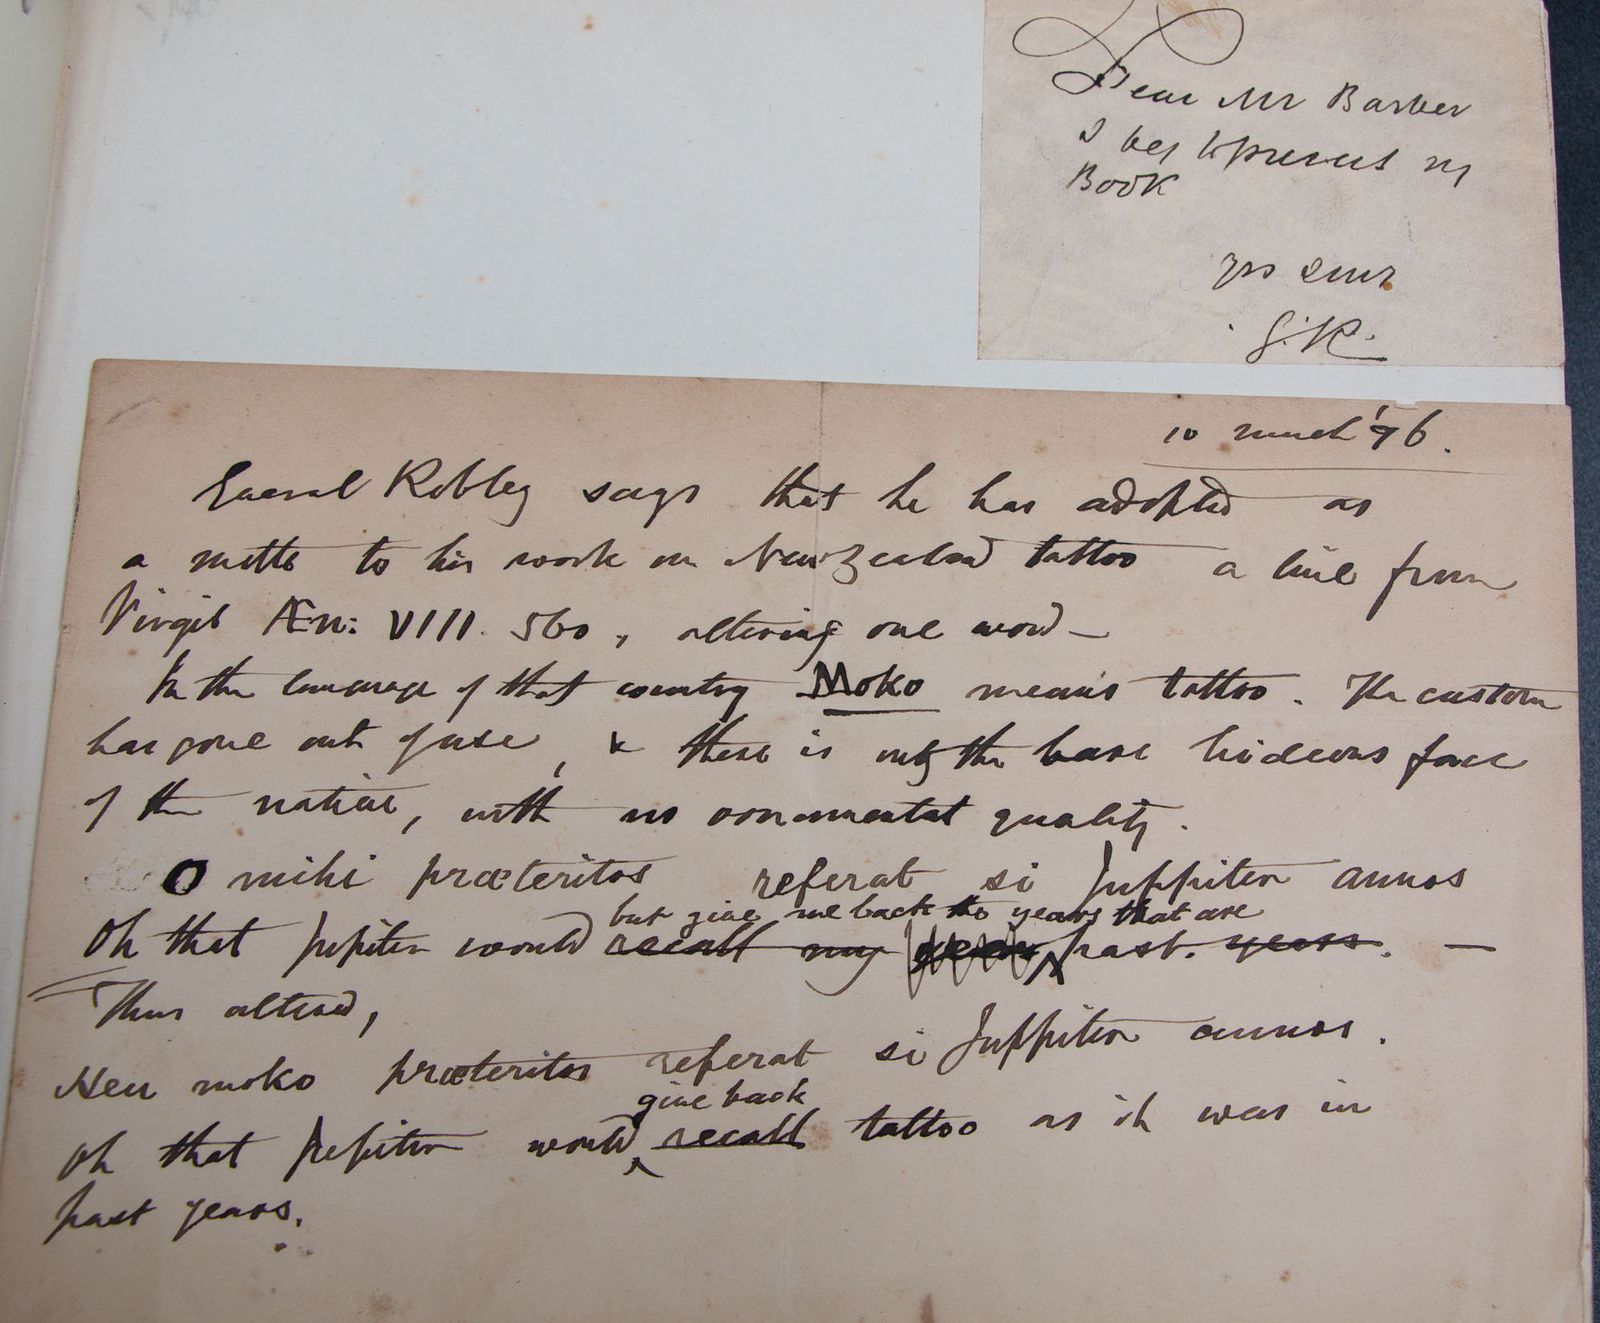 Dear Mr Barber
I beg to present my
Book
yrs sincy
G.R.
10 March '96.
General Robley says that he has adopted as
a motto to his work on New Zealand tattoo a line from
Virgil Æn: VIII. 560, altering one word —
In the language of that country Moko means tattoo. The custom
has gone out of use, & there is only the bare hideous face
of the native, with no ornamental quality.
O mihi præteritos referat si Juppiter annos
but give me back the years that are
Oh that Jupiter would recall my past years. —
Thus altered,
Heu moko præteritos referat si Juppiter annos.
give back
Oh that Jupiter would recall tattoo as it was in
past years.